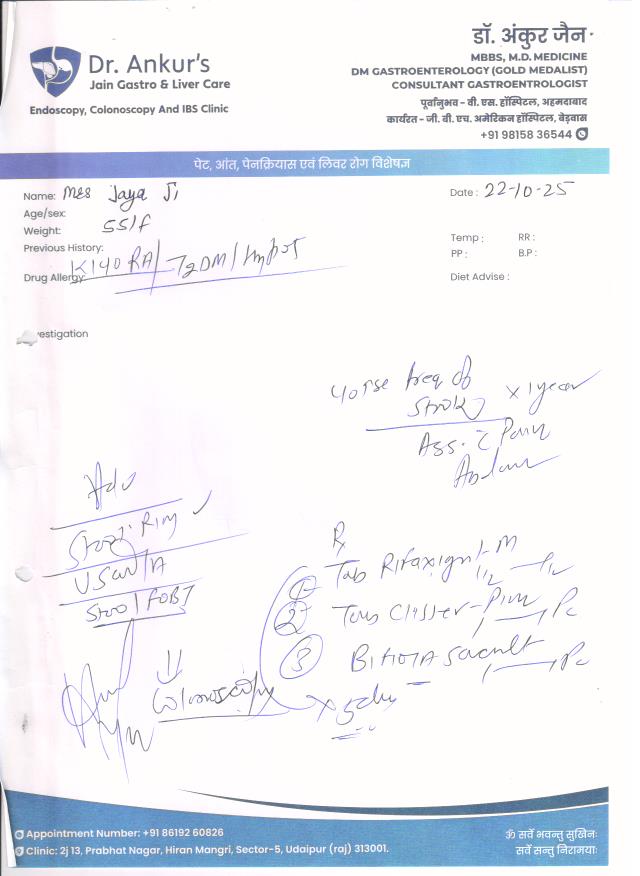 Dr. Ankur's
Jain Gastro & Liver Care
Endoscopy, Colonoscopy And IBS Clinic
डॉ. अंकुर जैन
MBBS, M.D. MEDICINE
DM GASTROENTEROLOGY (GOLD MEDALIST)
CONSULTANT GASTROENTROLOGIST
पूर्वानुभव - वी. एस. हॉस्पिटल, अहमदाबाद
कार्यरत - जी. बी. एच. अमेरिकन हॉस्पीटल, बेड़वास
+91 98158 36544
पेट, आंत, पेनक्रियास एवं लिवर रोग विशेषज्ञ
Name: Mrs Jaya Ji
Date : 22-10-25
Age/sex:
Weight: 55/f
Previous History:
Temp : RR :
PP : B.P :
Drug Allergy: K/40 RA/ T2DM/
Diet Advise :
vestigation
freq of
Stool x 1 year
Ass. c Pain
Adv
Stool R/M
USG W/A
Stool FOBT
Colonoscopy
Rx
1 Tab
2 Tab
3 Sachet
x 5 day
Appointment Number: +91 86192 60826
Clinic: 2j 13, Prabhat Nagar, Hiran Mangri, Sector-5, Udaipur (raj) 313001.
ॐ सर्वे भवन्तु सुखिनः
सर्वे सन्तु निरामयाः